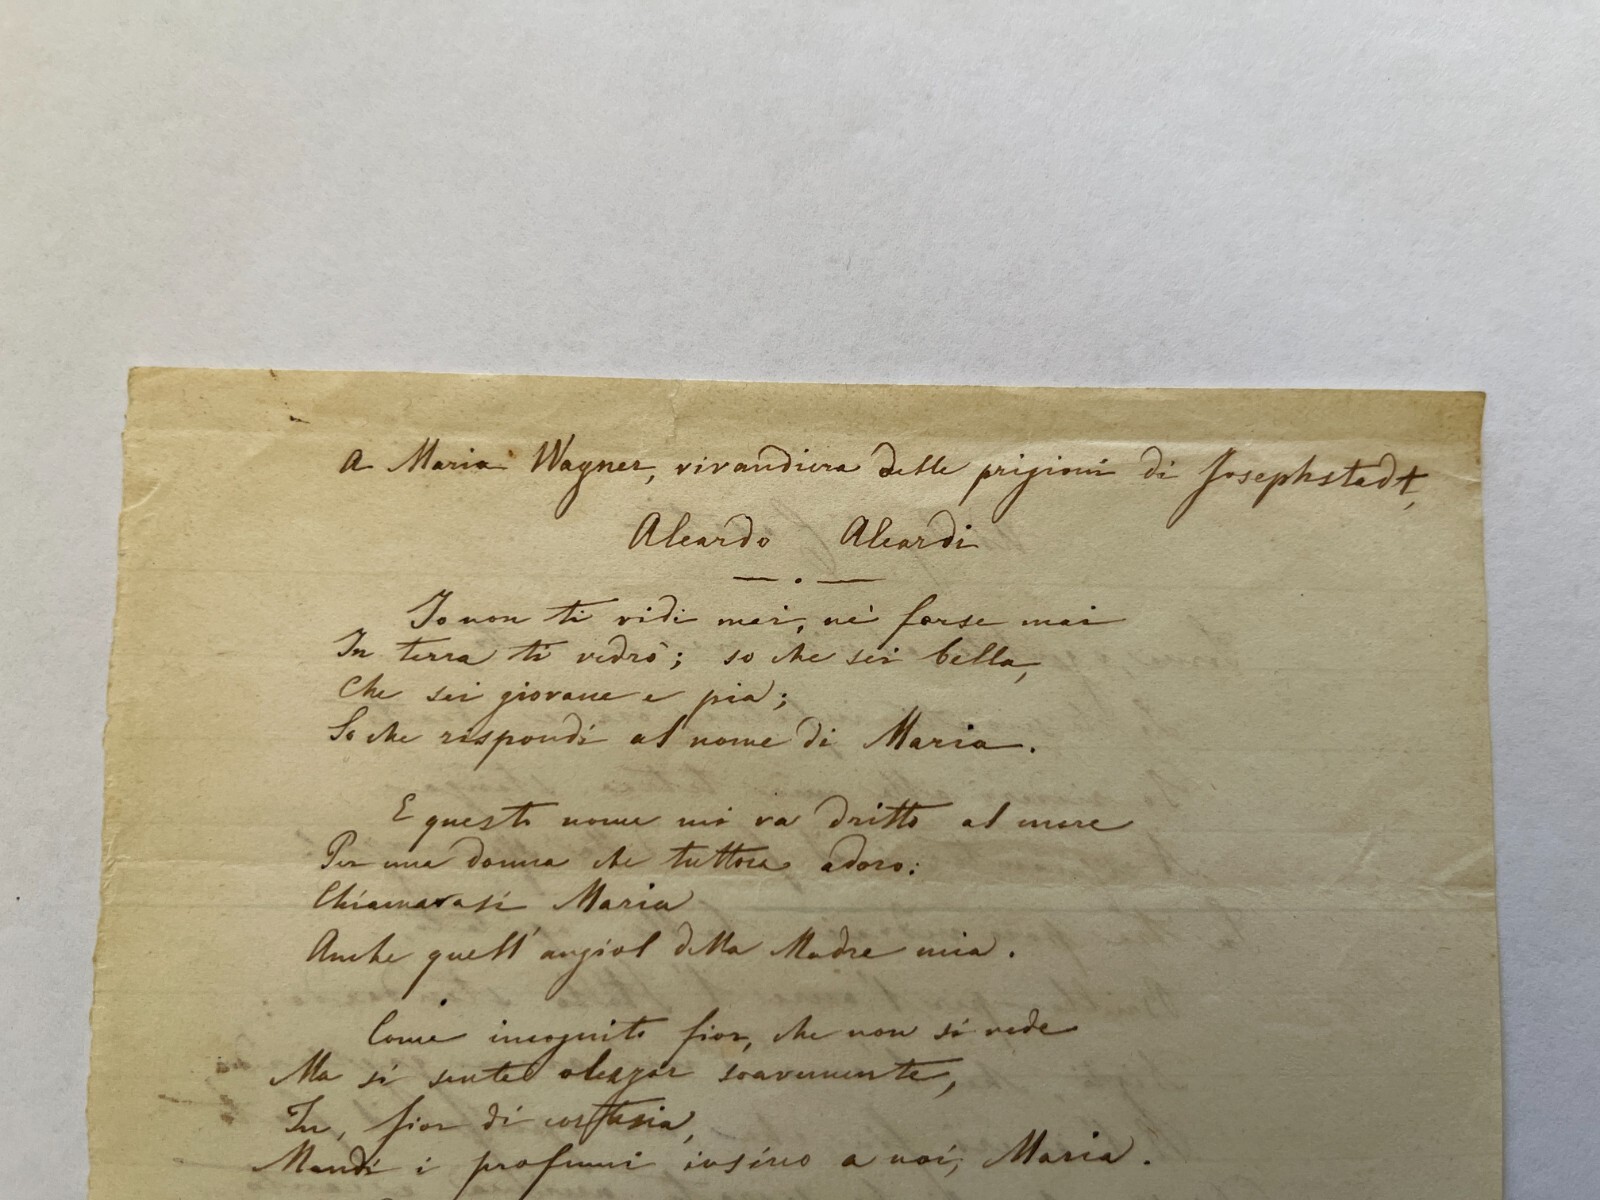 A Maria Wagner, vivandiera delle prigioni di Josephstadt,
Aleardo Aleardi
Io non ti vidi mai, nè forse mai
In terra ti vedrò; so che sei bella,
Che sei giovane e pia;
So che rispondi al nome di Maria.
E questo nome mi va dritto al core
Per una donna che tuttora adoro:
Chiamavasi Maria
Anche quell'angiol della Madre mia.
Come incognito fior, che non si vede
Ma si sente olezzar soavemente,
Tu, fior di cortesia,
Mandi i profumi insino a noi, Maria.